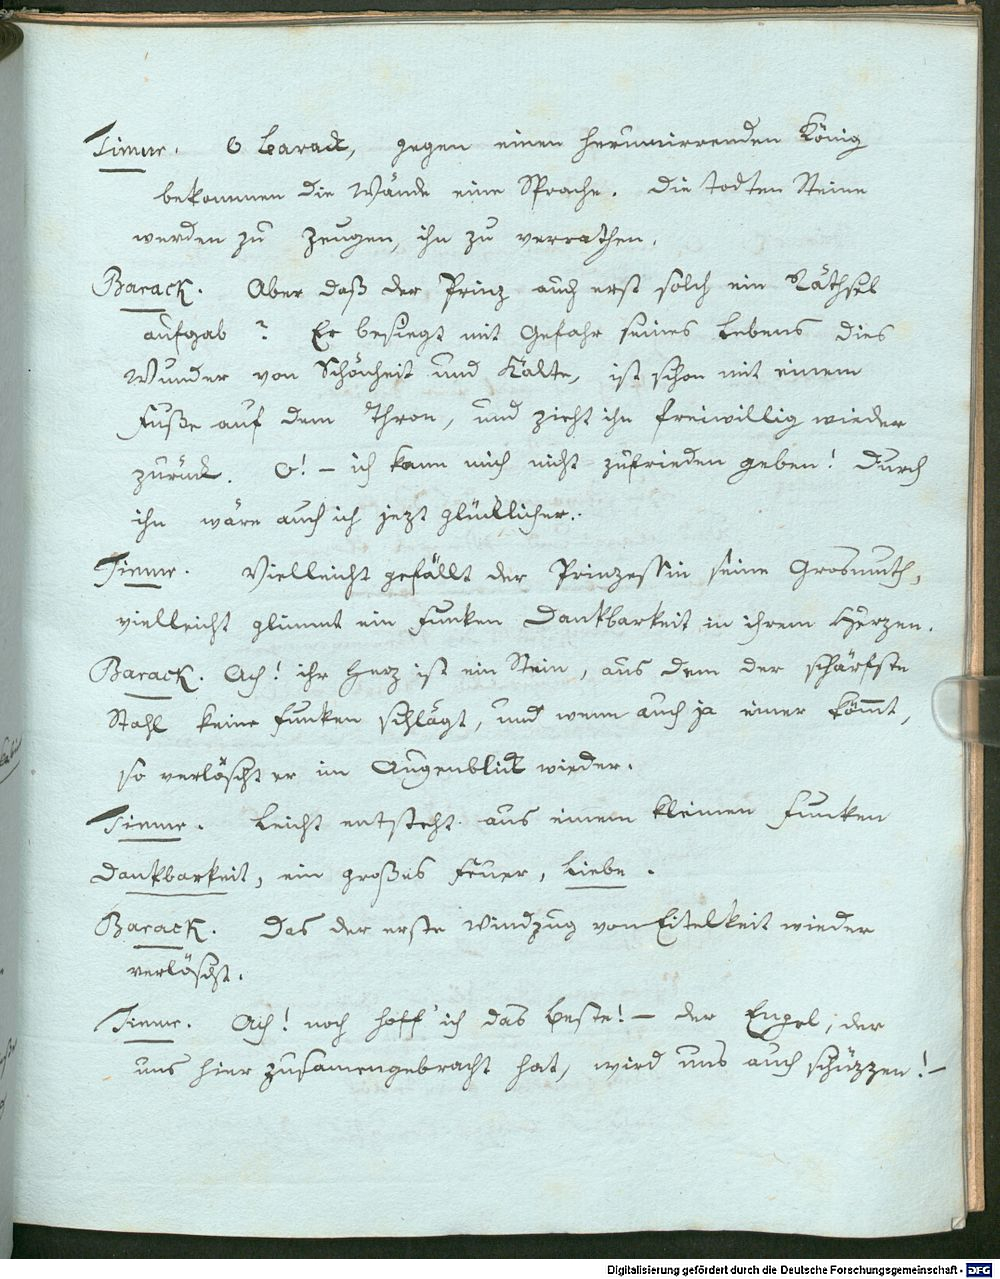 Timur. O Barack, gegen einen herumirrenden König
bekommen die Wände eine Sprache. Die todten Steine
werden zu Zeugen, ihn zu verrathen.
Barack. Aber daß der Prinz auch erst solch ein Räthsel
aufgab? Er besiegt mit Gefahr seines Lebens dies
Wunder von Schönheit und Kälte, ist schon mit einem
Fuße auf dem Thron, und zieht ihn freiwillig wieder
zurück. O! – ich kann mich nicht zufrieden geben! Durch
ihn wäre auch ich jezt glücklicher.
Timur. Vielleicht gefällt der Prinzessin seine Grosmuth,
vielleicht glimmt ein Funken Dankbarkeit in ihrem Herzen.
Barack. Ach! ihr Herz ist ein Stein, aus dem der schärfste
Stahl keine Funken schlägt, und wenn auch ja einer kömmt,
so verlöscht er im Augenblick wieder.
Timur. Leicht entsteht aus einem kleinen Funken
Dankbarkeit, ein großes Feuer, Liebe.
Barack. Das der erste Windzug von Eitelkeit wieder
verlöscht.
Timur. Ach! noch hoff' ich das Beste! – der Engel, der
uns hier zusamengebracht hat, wird uns auch schüzzen! –
Digitalisierung gefördert durch die Deutsche Forschungsgemeinschaft - DFG